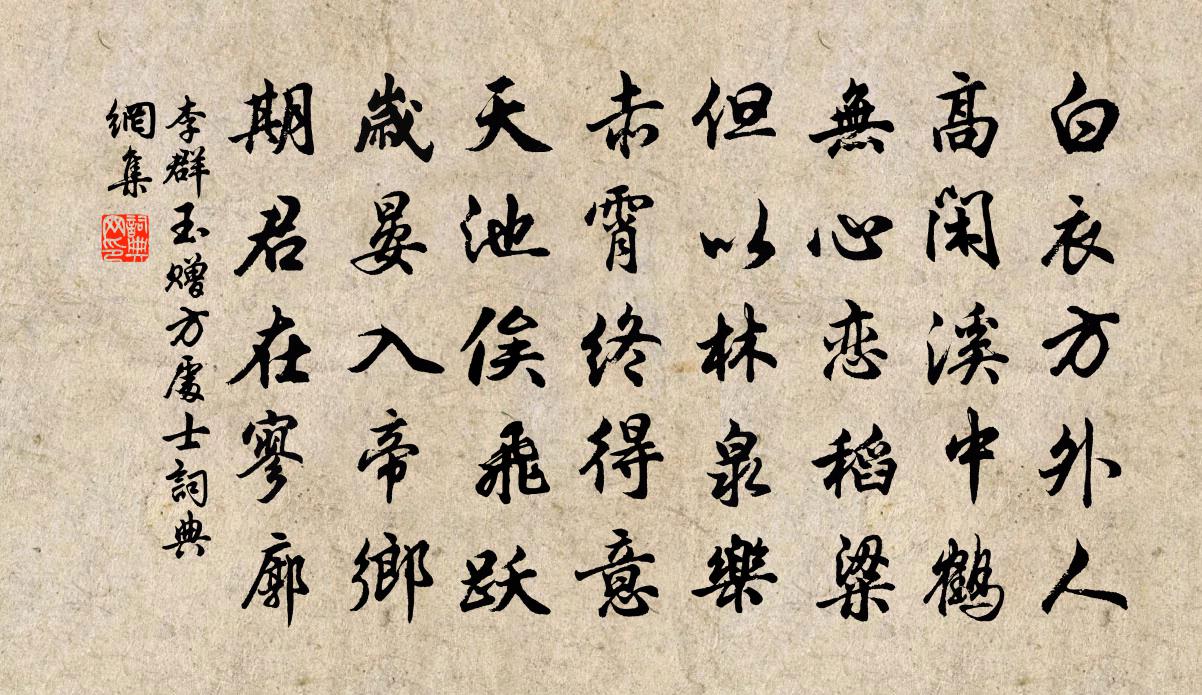 白衣方外人
高閑溪中鶴
無心恋稻粱
但以林泉樂
赤霄終得意
天池俟飛跃
歲晏入帝鄉
期君在寥廓
李群玉赠方處士詞典
網集
詞典
网印